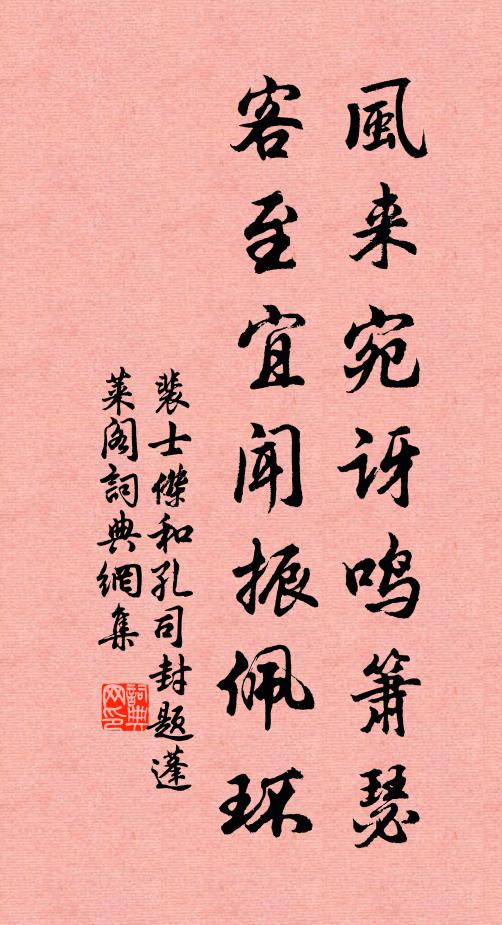 風来宛讶鸣箫瑟
客至宜闻振佩环
裴士傑和孔司封题蓬
莱阁詞典網集
詞典
网印